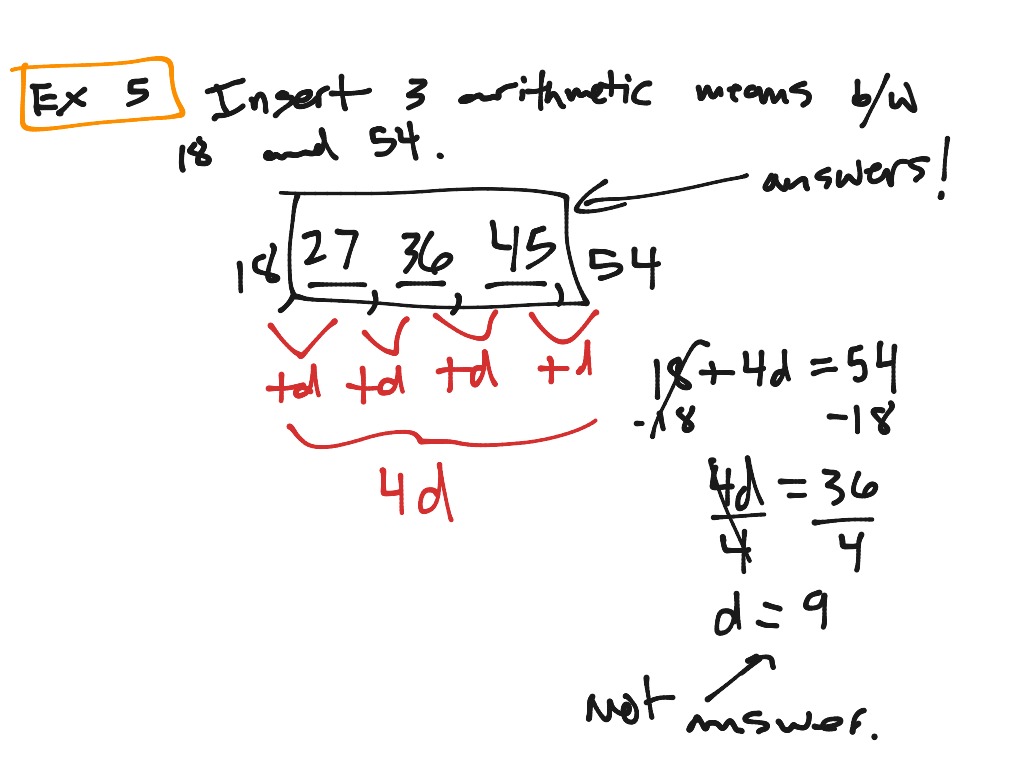 Ex 5 Insert 3 arithmetic means b/w
18 and 54.
answers!
18 27, 36, 45, 54
+d +d +d +d
4d
18 + 4d = 54
-18 -18
4d = 36
4 4
d = 9
Not answer.